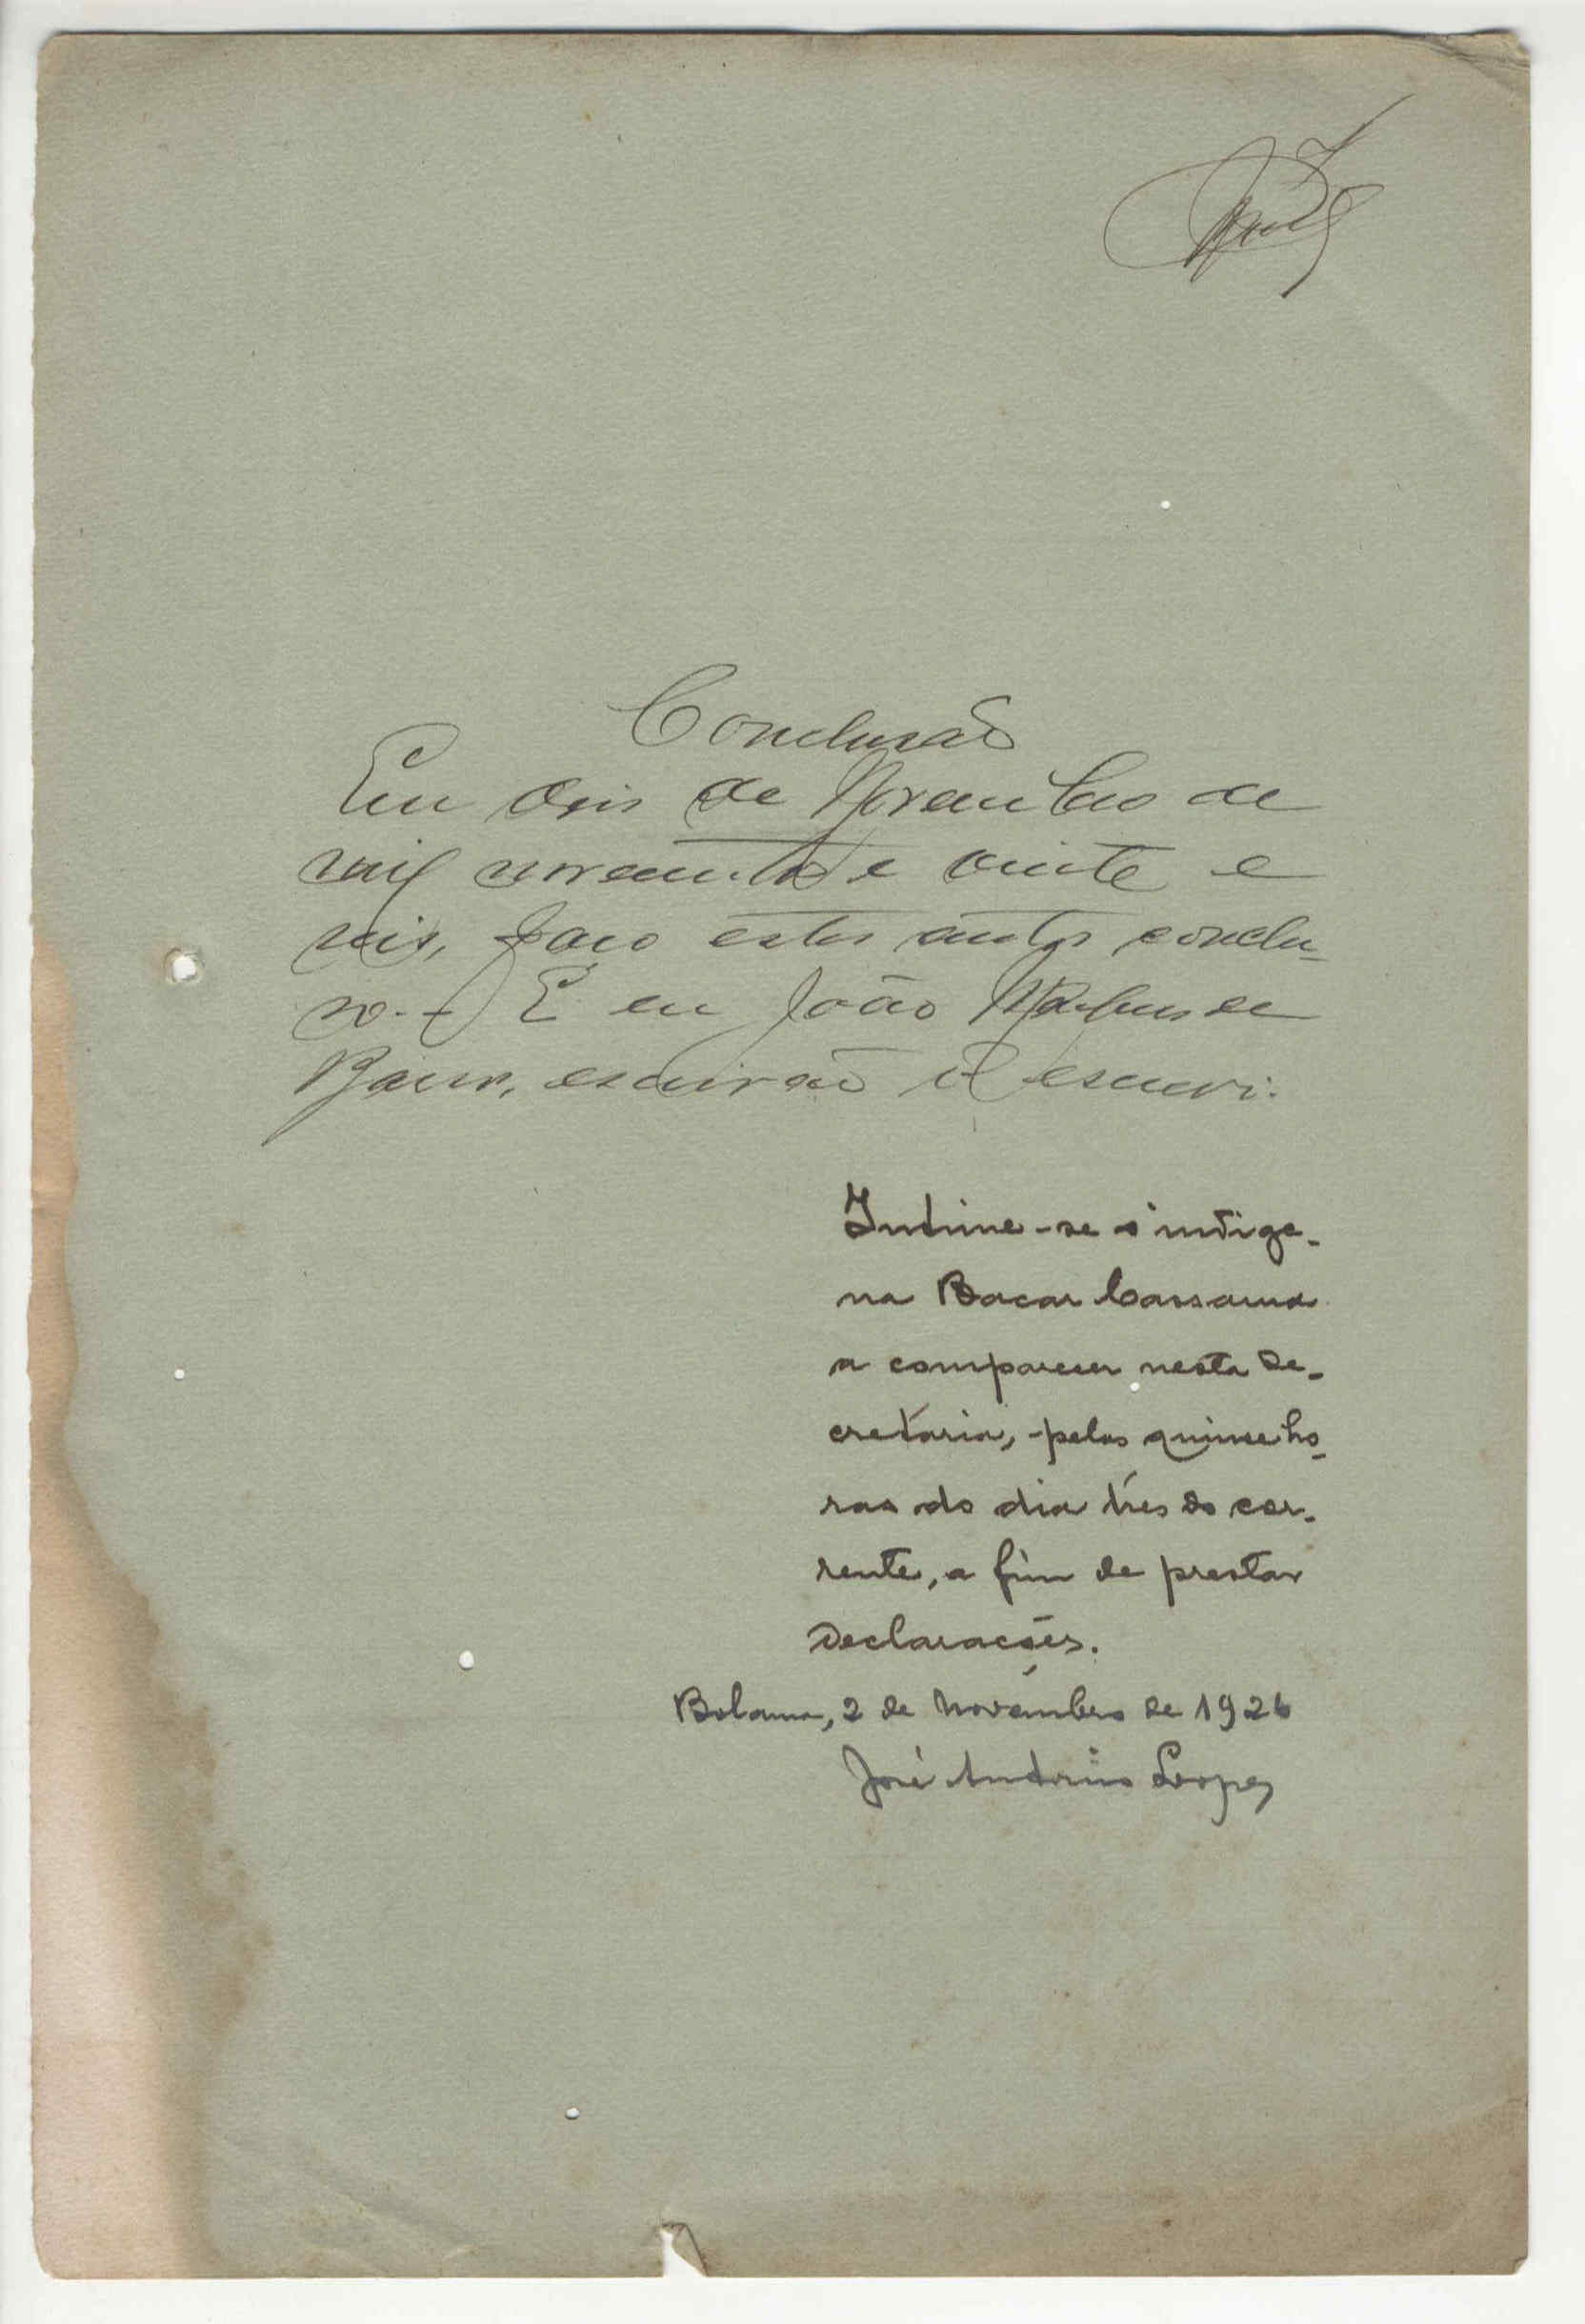 Conclusão
Em dois de Novembro de
mil novecentos e vinte e
seis, faço estes autos conclu-
so. E eu João
Barros, escrivão o escrevi.
Intime-se o indige-
na Bacar Cassama
a comparecer nesta Se-
cretaria, pelas quinse ho-
ras do dia três do cor-
rente, a fim de prestar
declarações.
Bolama, 2 de Novembro de 1926
José António Lopes